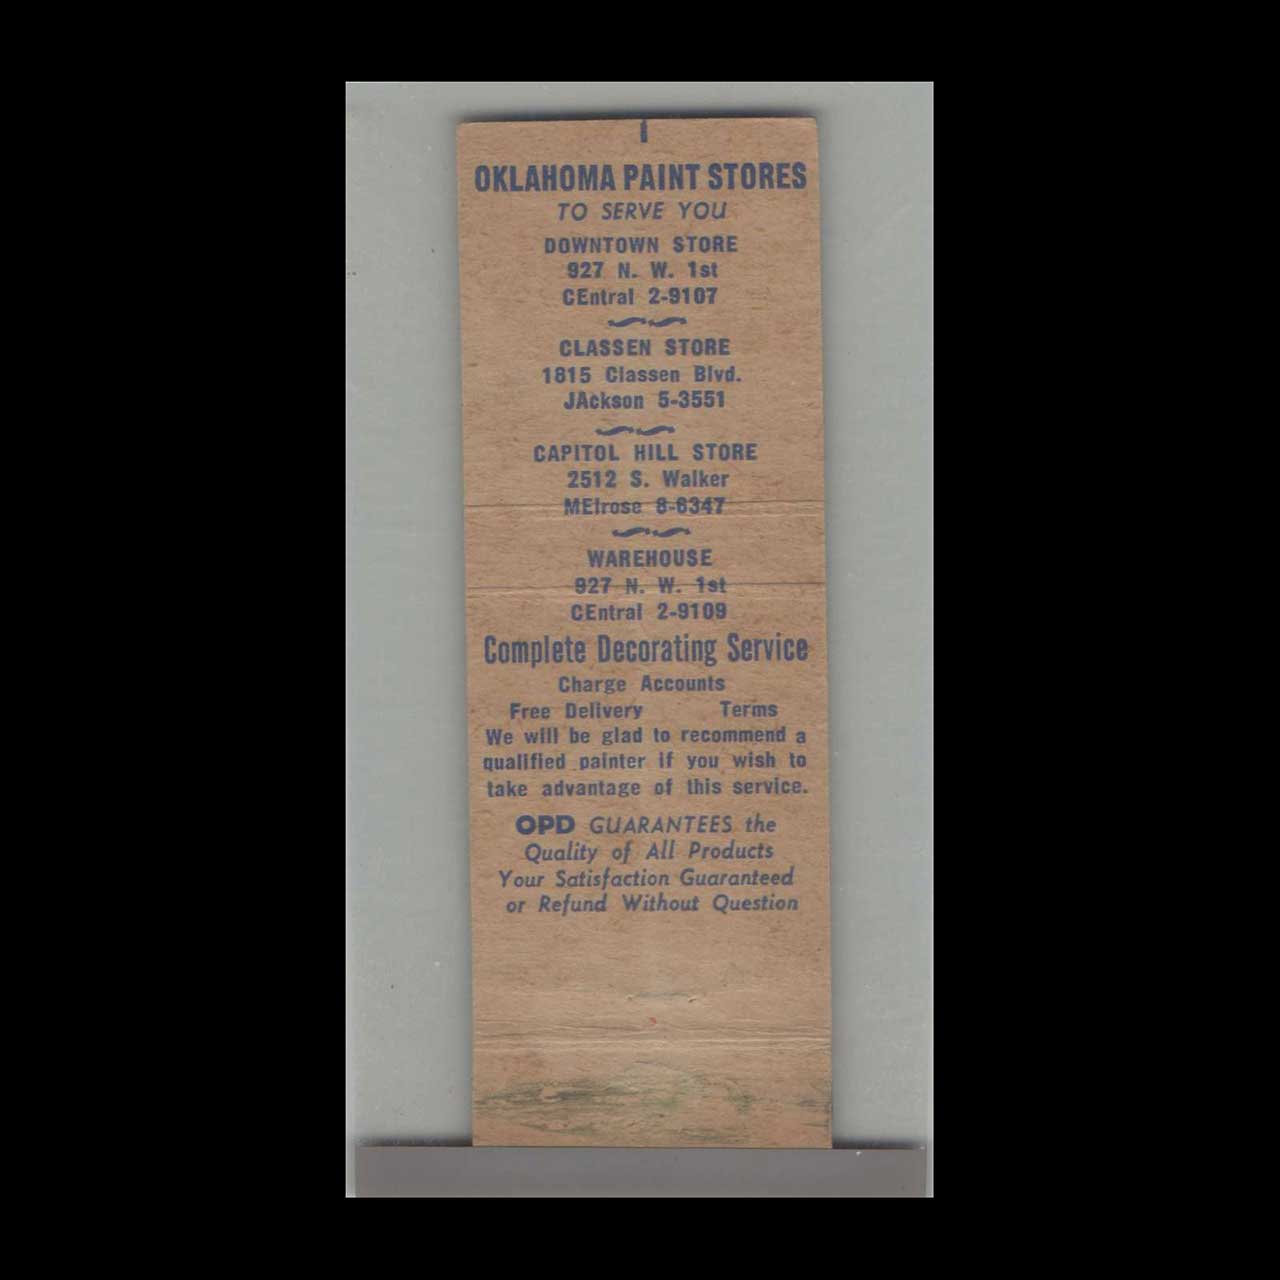 OKLAHOMA PAINT STORES
TO SERVE YOU
DOWNTOWN STORE
927 N. W. 1st
CEntral 2-9107
CLASSEN STORE
1815 Classen Blvd.
JAckson 5-3551
CAPITOL HILL STORE
2512 S. Walker
MElrose 8-6347
WAREHOUSE
927 N. W. 1st
CEntral 2-9109
Complete Decorating Service
Charge Accounts
Free Delivery Terms
We will be glad to recommend a
qualified painter if you wish to
take advantage of this service.
OPD GUARANTEES the
Quality of All Products
Your Satisfaction Guaranteed
or Refund Without Question